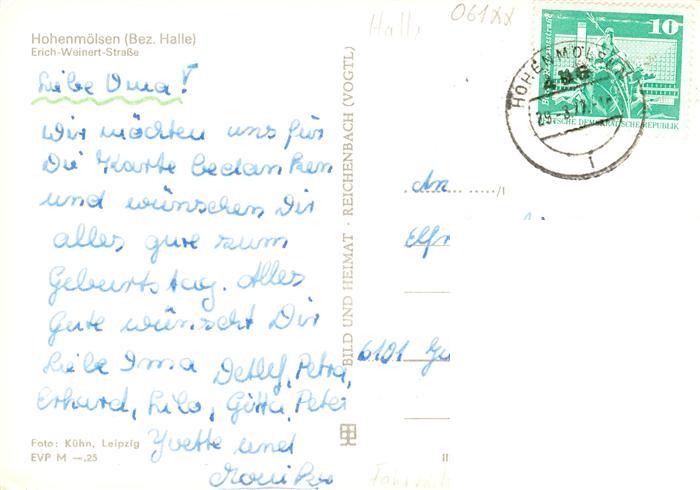 Hohenmölsen (Bez. Halle)
Erich-Weinert-Straße
Liebe Oma!
Wir möchten uns für
Die Karte bedanken
und wünschen Dir
alles gute zum
Geburtstag. Alles
Gute wünscht Dir
Liebe Ima Detlef, Petra,
Erhard, Lilo, Gitta, Peter
Yvette und
Monika
Foto: Kühn, Leipzig
EVP M —,25
BILD UND HEIMAT · REICHENBACH (VOGTL)
Hall
061xx
10
HOHENMÖLSEN
DEUTSCHE DEMOKRATISCHE REPUBLIK
An
Elfr
6101